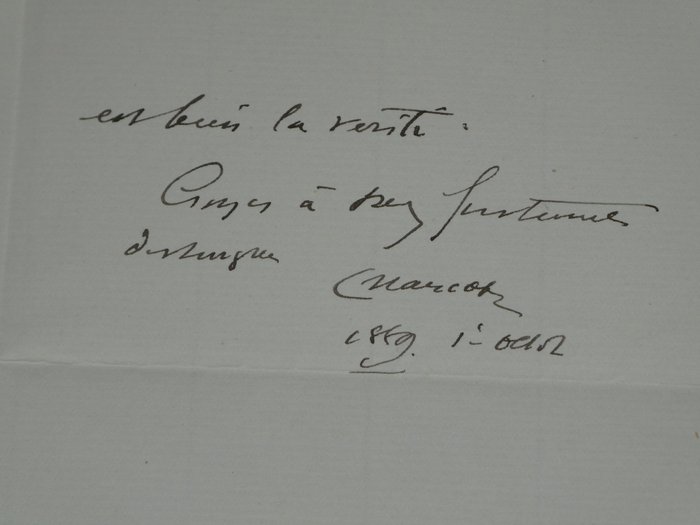 est bien la verité.
Croyez à mes sentiments
distingués
Charcot
1889. 1er octob